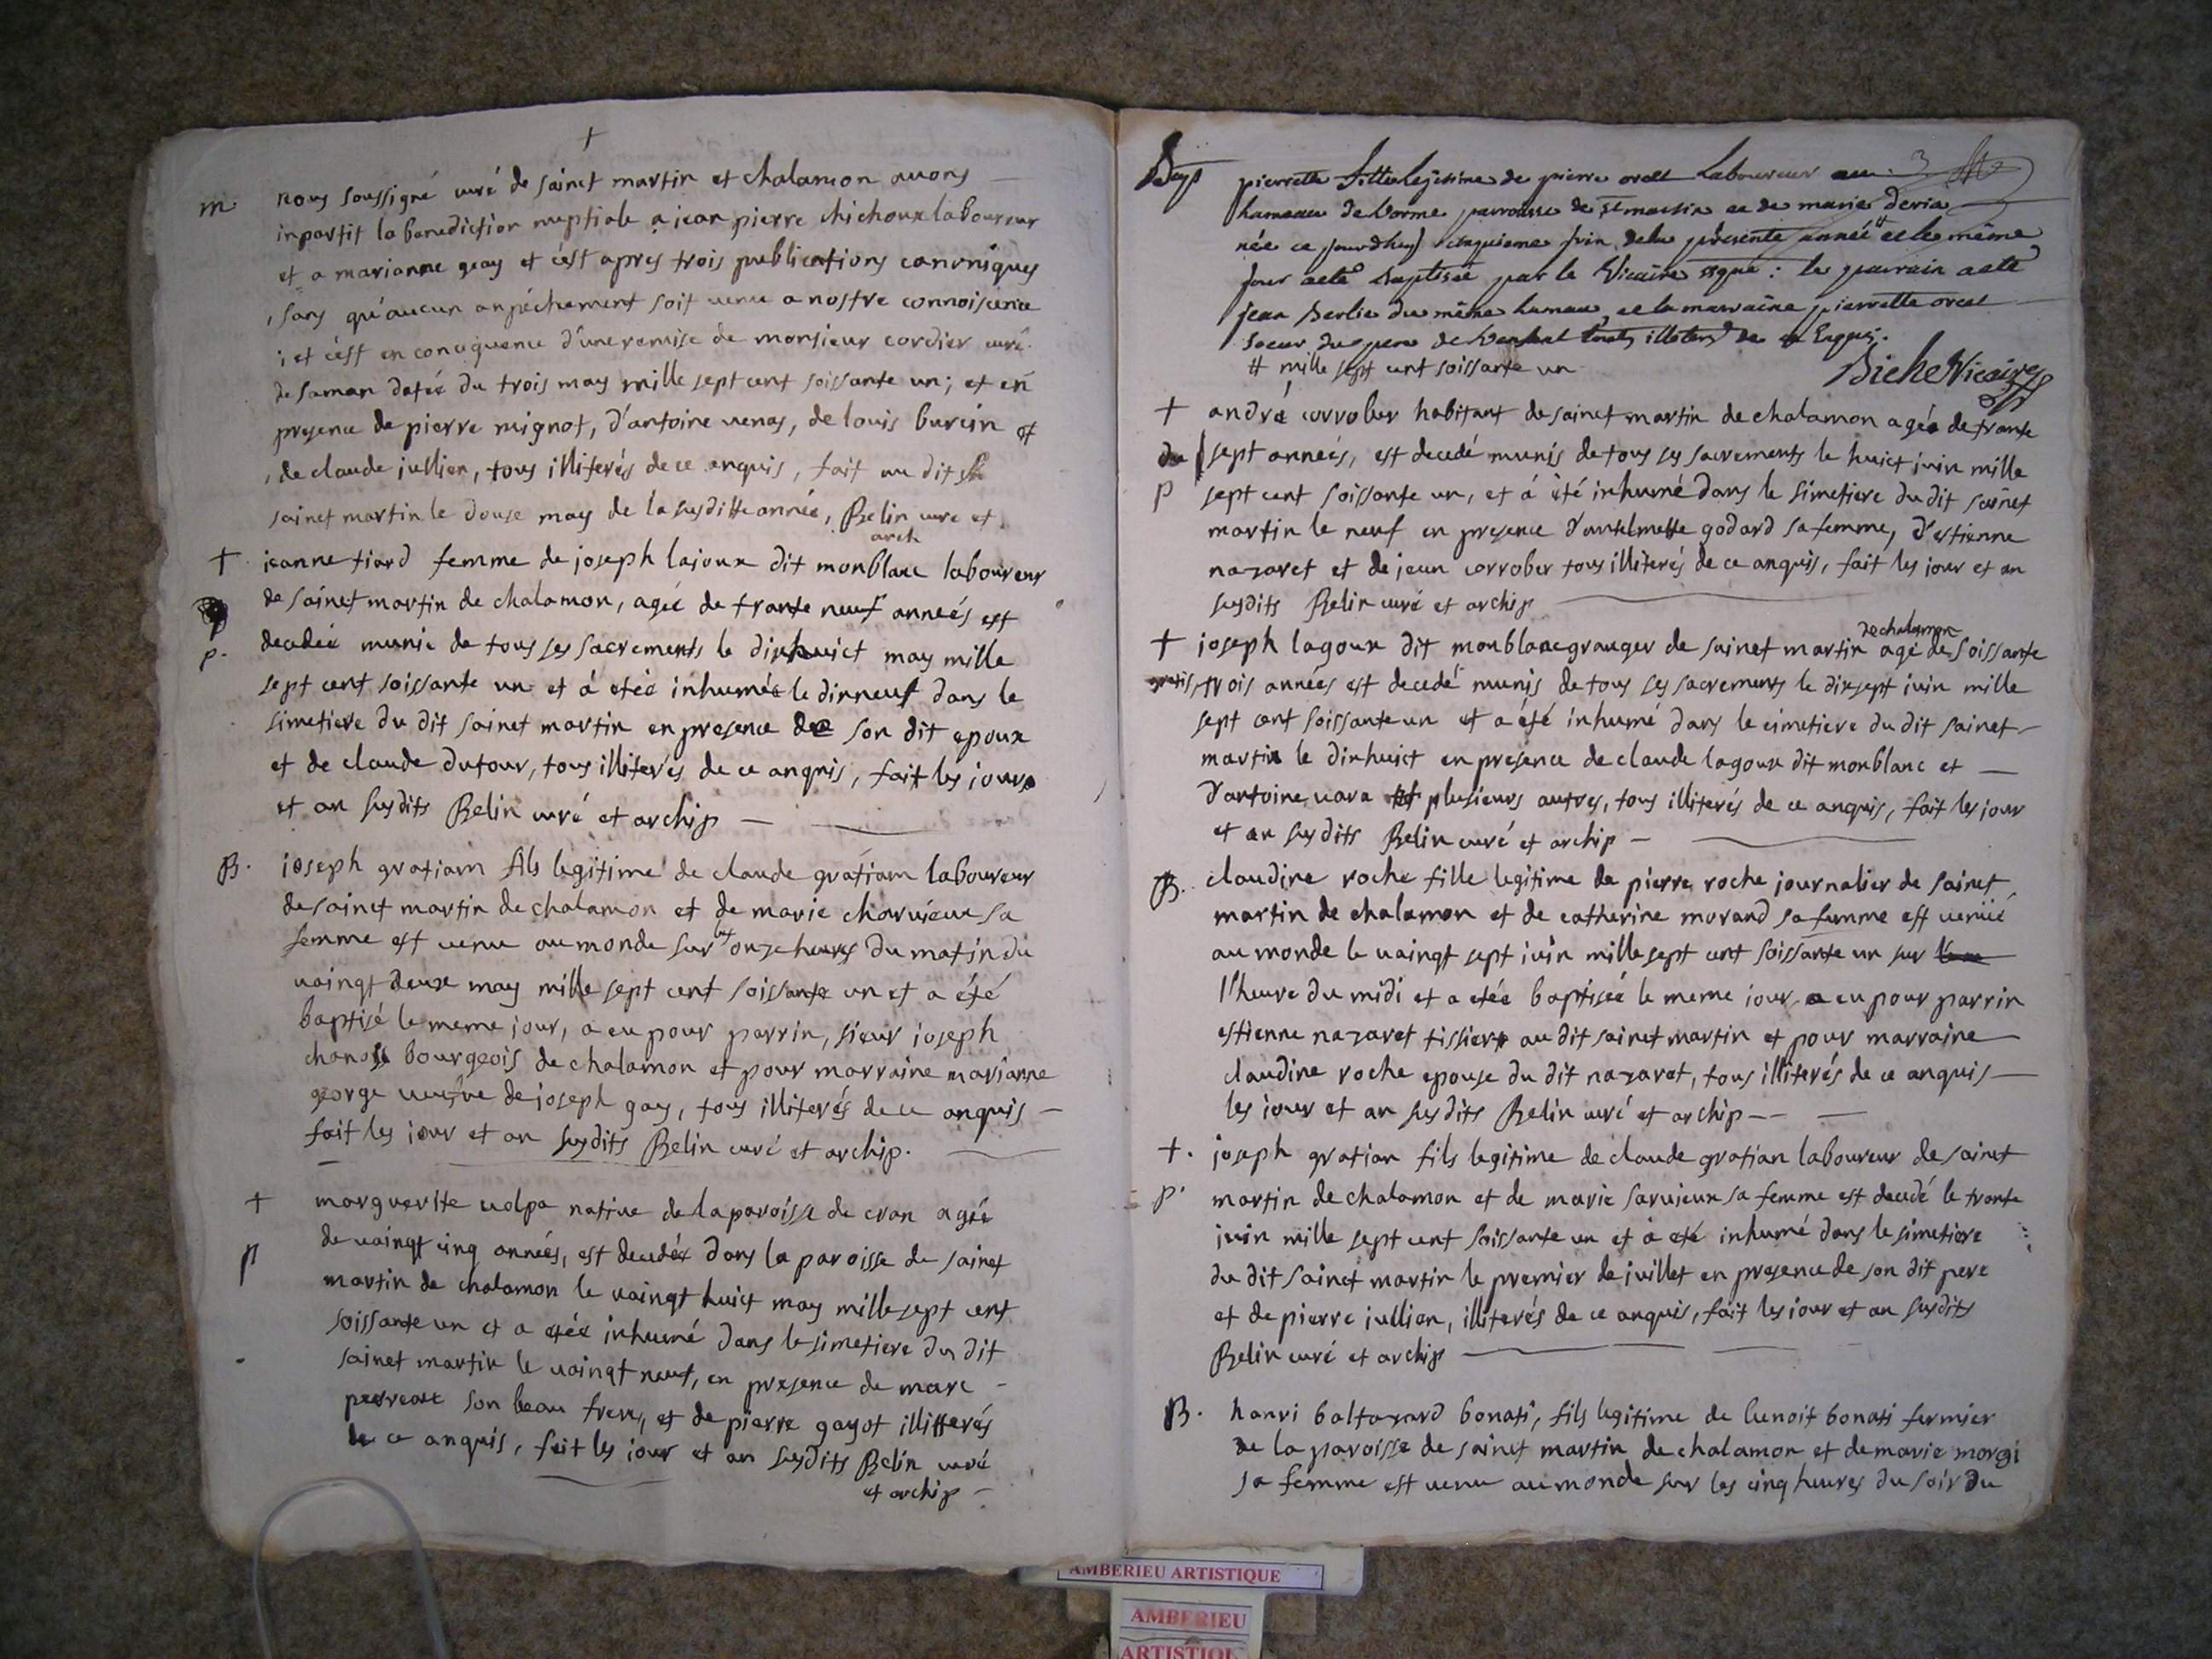 +
m. nous soussigné curé de sainct martin et chalamon avons
inpartit la benediction nuptiale a jean pierre chichoux laboureur
et a marianne geay et c'est apres trois publications canoniques
sans qu'aucun anpéchement soit venu a nostre connoisence
et c'est en consequence d'une remise de monsieur cordier curé
de saman datée du trois may mille sept cent soissante un; et en
presence de pierre mignot, d'antoine venas, de louis burcin et
de claude jullien, tous illiterés de ce anquis, fait au dit
sainct martin le douse may de la susditte année, Belin curé et
arch
+ ieanne tiard femme de joseph lajoux dit monblanc laboureur
de sainct martin de chalamon, agée de trante neuf années est
p. decedée munie de tous ses sacrements le dixhuict may mille
sept cent soissante un et à etée inhumée le dixneuf dans le
simetiere du dit sainct martin en presence de son dit epoux
et de claude dutour, tous illiterés de ce anquis, fait les jours
et an susdits Belin curé et archip
B. ioseph gratian fils legitime de claude gratian laboureur
de sainct martin de chalamon et de marie charvieux sa
femme est venu au monde sur les onze heures du matin du
vaingt deux may mille sept cent soissante un et a été
baptisé le meme jour, a eu pour parrin, sieur joseph
bourgeois de chalamon et pour marraine marianne
george veufve de joseph gay, tous illiterés de ce anquis
fait les jour et an susdits Belin curé et archip.
+ marguerite volpa native de la paroisse de cran agée
de vaingt cinq années, est decedée dans la paroisse de sainct
p martin de chalamon le vaingt huict may mille sept cent
soissante un et a etée inhumé dans le simetiere du dit
sainct martin le vaingt neuf, en presence de marc
perreaut son beau frere, et de pierre gayot illitterés
de ce anquis, fait les jour et an susdits Belin curé
et archip
3
pierrette fille lejitime de pierre orcel Laboureur au
hameau de Vorme parroisse de st martin et de marie deria
née ce jourdhuy cinquieme juin de la présente année # et le même
jour a eté baptisée par le Vicaire signé: le parrain a eté
jean Berlie du même hameau, et la marraine pierrette orcel
soeur du pere de l'enfant touts illiterés de ce Enquis.
# mille sept cent soissante un
Biche Vicaire
+ andré corrober habitant de sainct martin de chalamon agée de trante
sept années, est decedé munis de tous ses sacrements le huict juin mille
p sept cent soissante un, et á été inhumé dans le simetiere du dit sainct
martin le neuf en presence d'antelmette godard sa femme, d'estienne
nazaret et de jean corrober tous illiterés de ce anquis, fait les jour et an
susdits Belin curé et archip
+ ioseph lagoux dit monblanc granger de sainct martin de chalamon agé de soissante
gratis, trois années est decedé munis de tous ses sacrements le dixsept juin mille
sept cent soissante un et a été inhumé dans le cimetiere du dit sainct
martin le dixhuict en presence de claude lagoux dit monblanc et
d'antoine vara et plusieurs autres, tous illiterés de ce anquis, fait les jour
et an susdits Belin curé et archip
B. claudine roche fille legitime de pierre roche journalier de sainct
martin de chalamon et de catherine morand sa femme est venüé
au monde le vaingt sept juin mille sept cent soissante un sur
l'heure du midi et a etée baptisée le meme iour, a eu pour parrin
estienne nazaret tissier au dit sainct martin et pour marraine
claudine roche epouse du dit nazaret, tous illiterés de ce anquis
les iour et an susdits Belin curé et archip
+. joseph gratian fils legitime de claude gratian laboureur de sainct
p. martin de chalamon et de marie sarvieux sa femme est decedé le trante
juin mille sept cent soissante un et à eté inhumé dans le simetiere
du dit sainct martin le premier de juillet en presence de son dit pere
et de pierre jullien, illiterés de ce anquis, fait les jour et an susdits
Belin curé et archip
B. hanri baltazard bonati, fils legitime de benoit bonati fermier
de la paroisse de sainct martin de chalamon et de marie morgi
sa femme est venu au monde sur les cinq heures du soir du
AMBERIEU ARTISTIQUE
AMBERIEU
ARTISTIQU